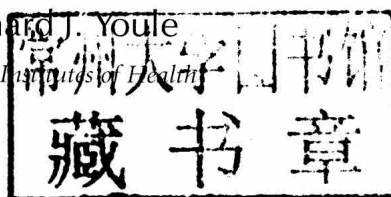 hard J. Youle
Institutes of Health
常州大学图书馆
藏书章